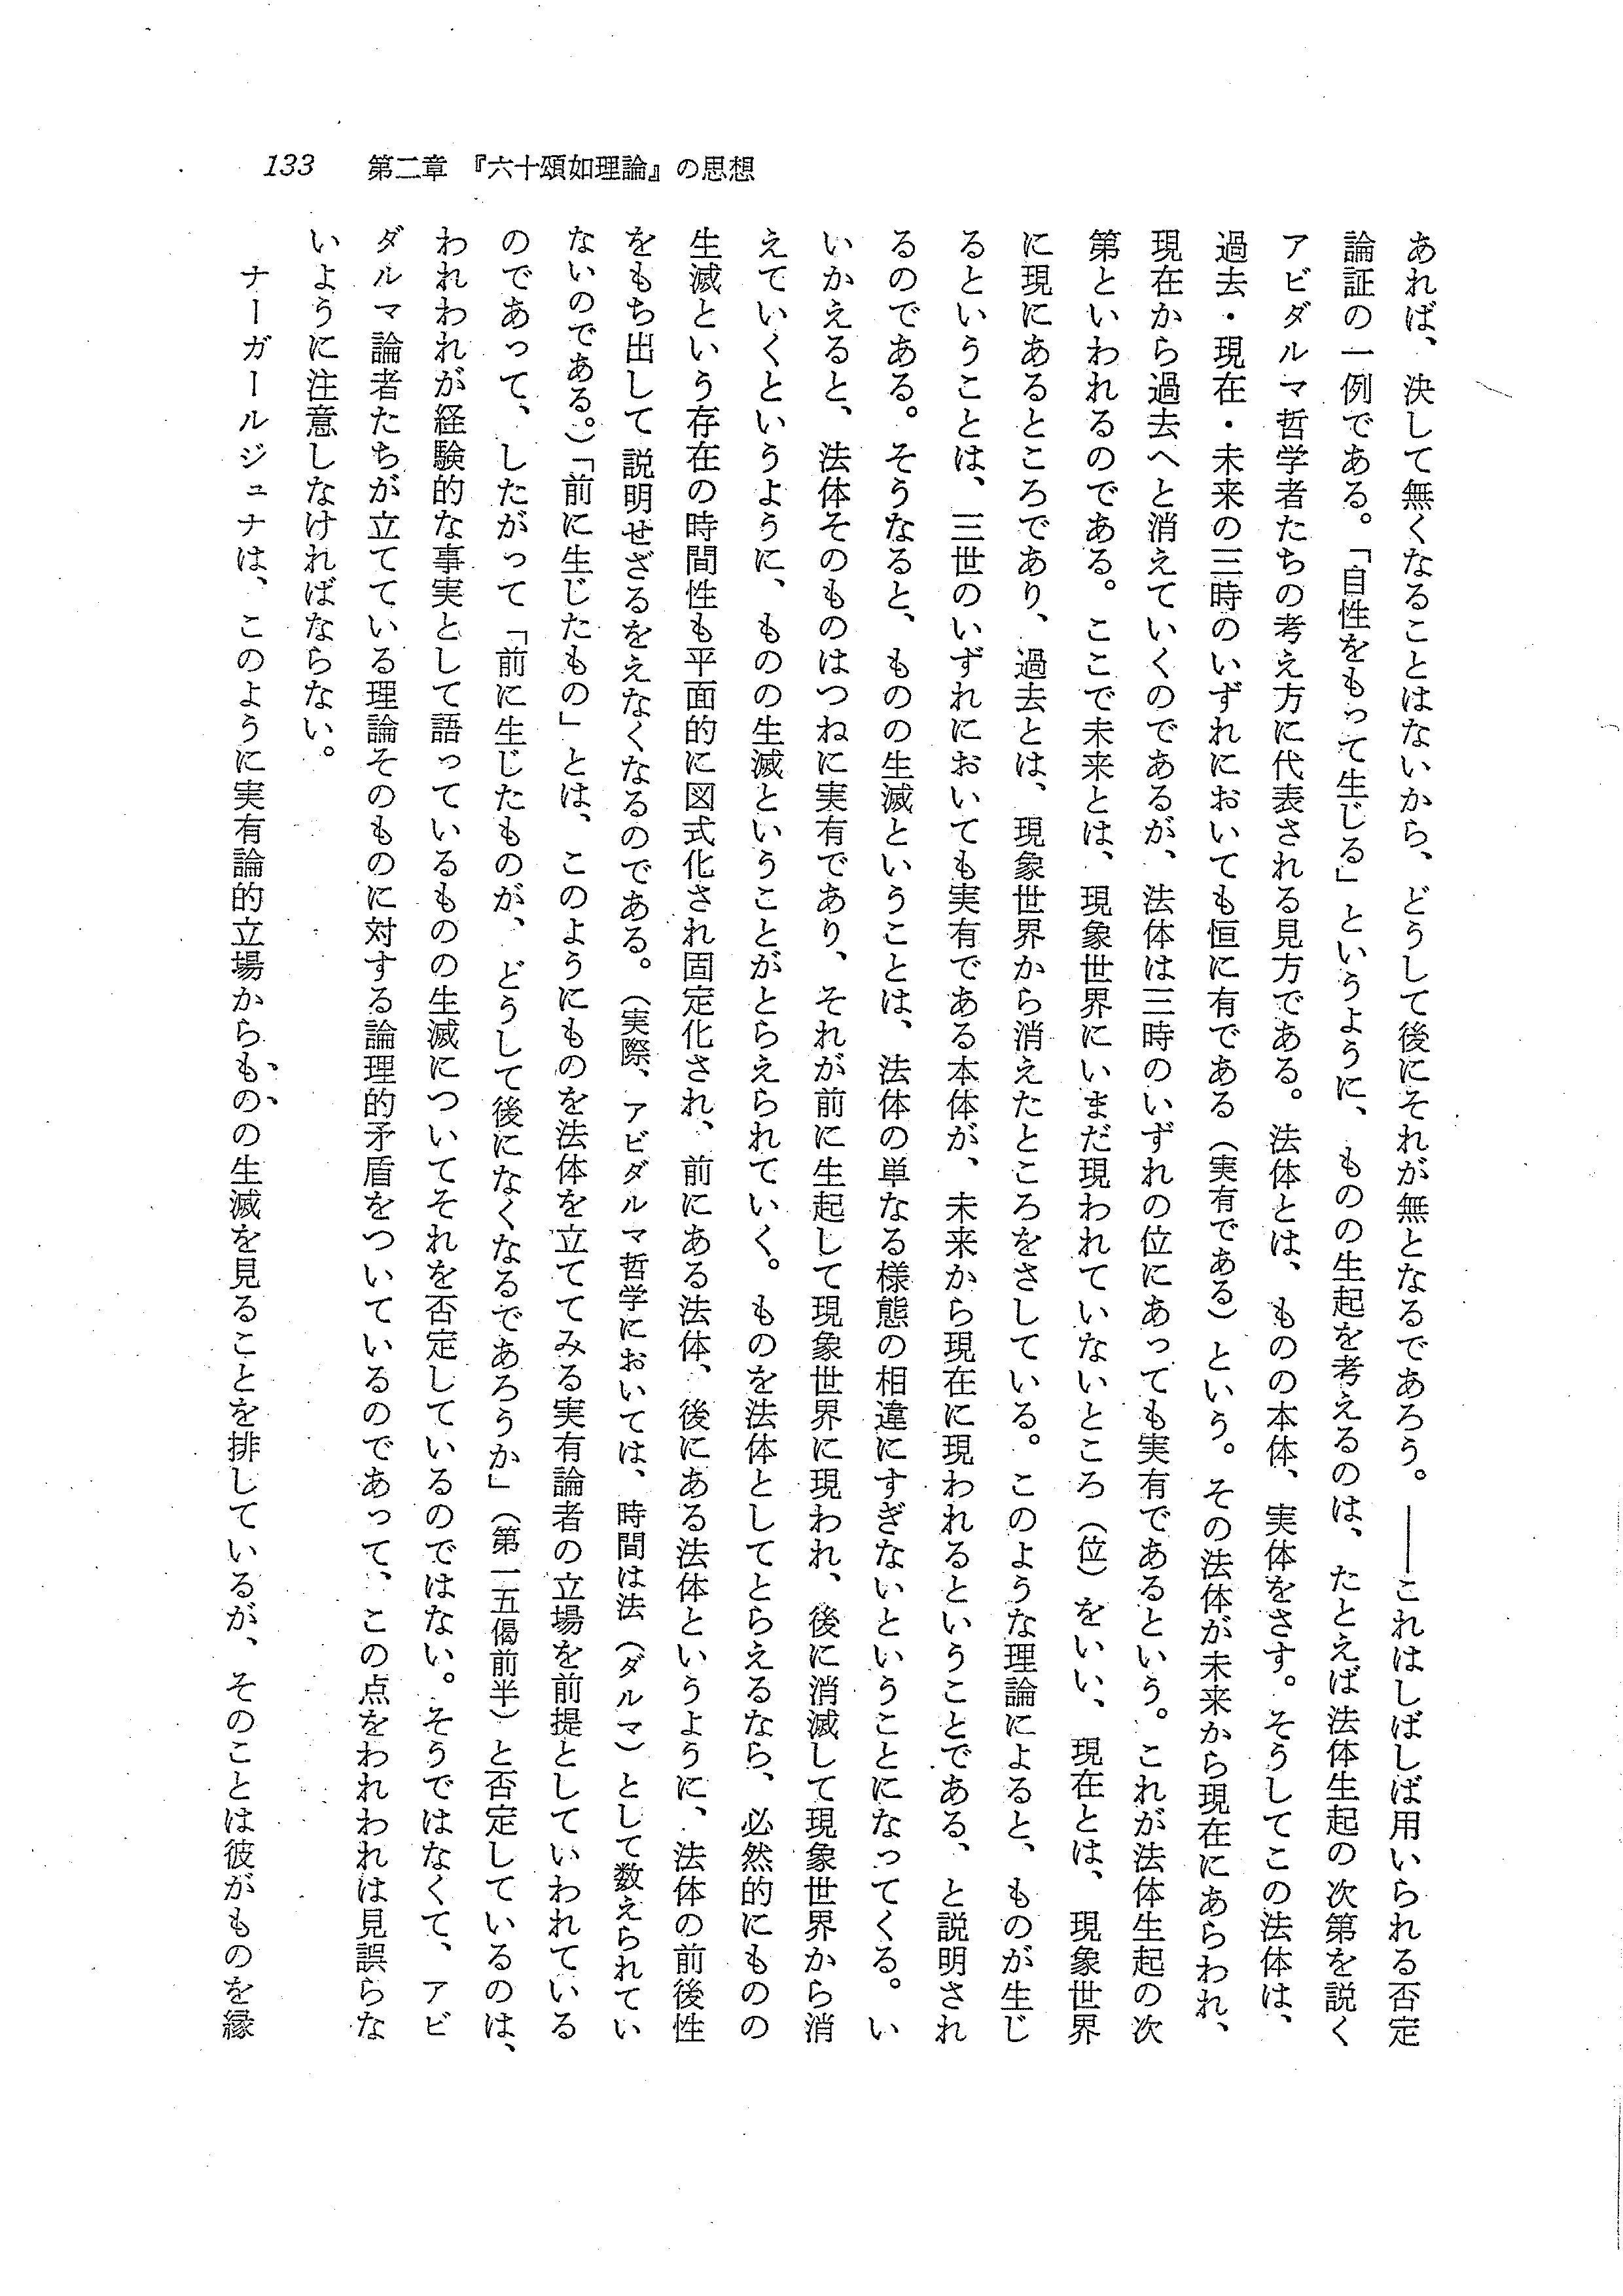 133　第二章　『六十頌如理論』の思想
あれば、決して無くなることはないから、どうして後にそれが無となるであろう。――これはしばしば用いられる否定
論証の一例である。「自性をもって生じる」というように、ものの生起を考えるのは、たとえば法体生起の次第を説く
アビダルマ哲学者たちの考え方に代表される見方である。法体とは、ものの本体、実体をさす。そうしてこの法体は、
過去・現在・未来の三時のいずれにおいても恒に有である（実有である）という。その法体が未来から現在にあらわれ、
現在から過去へと消えていくのであるが、法体は三時のいずれの位にあっても実有であるという。これが法体生起の次
第といわれるのである。ここで未来とは、現象世界にいまだ現われていないところ（位）をいい、現在とは、現象世界
に現にあるところであり、過去とは、現象世界から消えたところをさしている。このような理論によると、ものが生じ
るということは、三世のいずれにおいても実有である本体が、未来から現在に現われるということである、と説明され
るのである。そうなると、ものの生滅ということは、法体の単なる様態の相違にすぎないということになってくる。い
いかえると、法体そのものはつねに実有であり、それが前に生起して現象世界に現われ、後に消滅して現象世界から消
えていくというように、ものの生滅ということがとらえられていく。ものを法体としてとらえるなら、必然的にものの
生滅という存在の時間性も平面的に図式化され固定化され、前にある法体、後にある法体というように、法体の前後性
をもち出して説明せざるをえなくなるのである。（実際、アビダルマ哲学においては、時間は法（ダルマ）として数えられてい
ないのである。）「前に生じたもの」とは、このようにものを法体を立ててみる実有論者の立場を前提としていわれている
のであって、したがって「前に生じたものが、どうして後になくなるであろうか」（第一五偈前半）と否定しているのは、
われわれが経験的な事実として語っているものの生滅についてそれを否定しているのではない。そうではなくて、アビ
ダルマ論者たちが立てている理論そのものに対する論理的矛盾をついているのであって、この点をわれわれは見誤らな
いように注意しなければならない。
　ナーガールジュナは、このように実有論的立場からものの生滅を見ることを排しているが、そのことは彼がものを縁